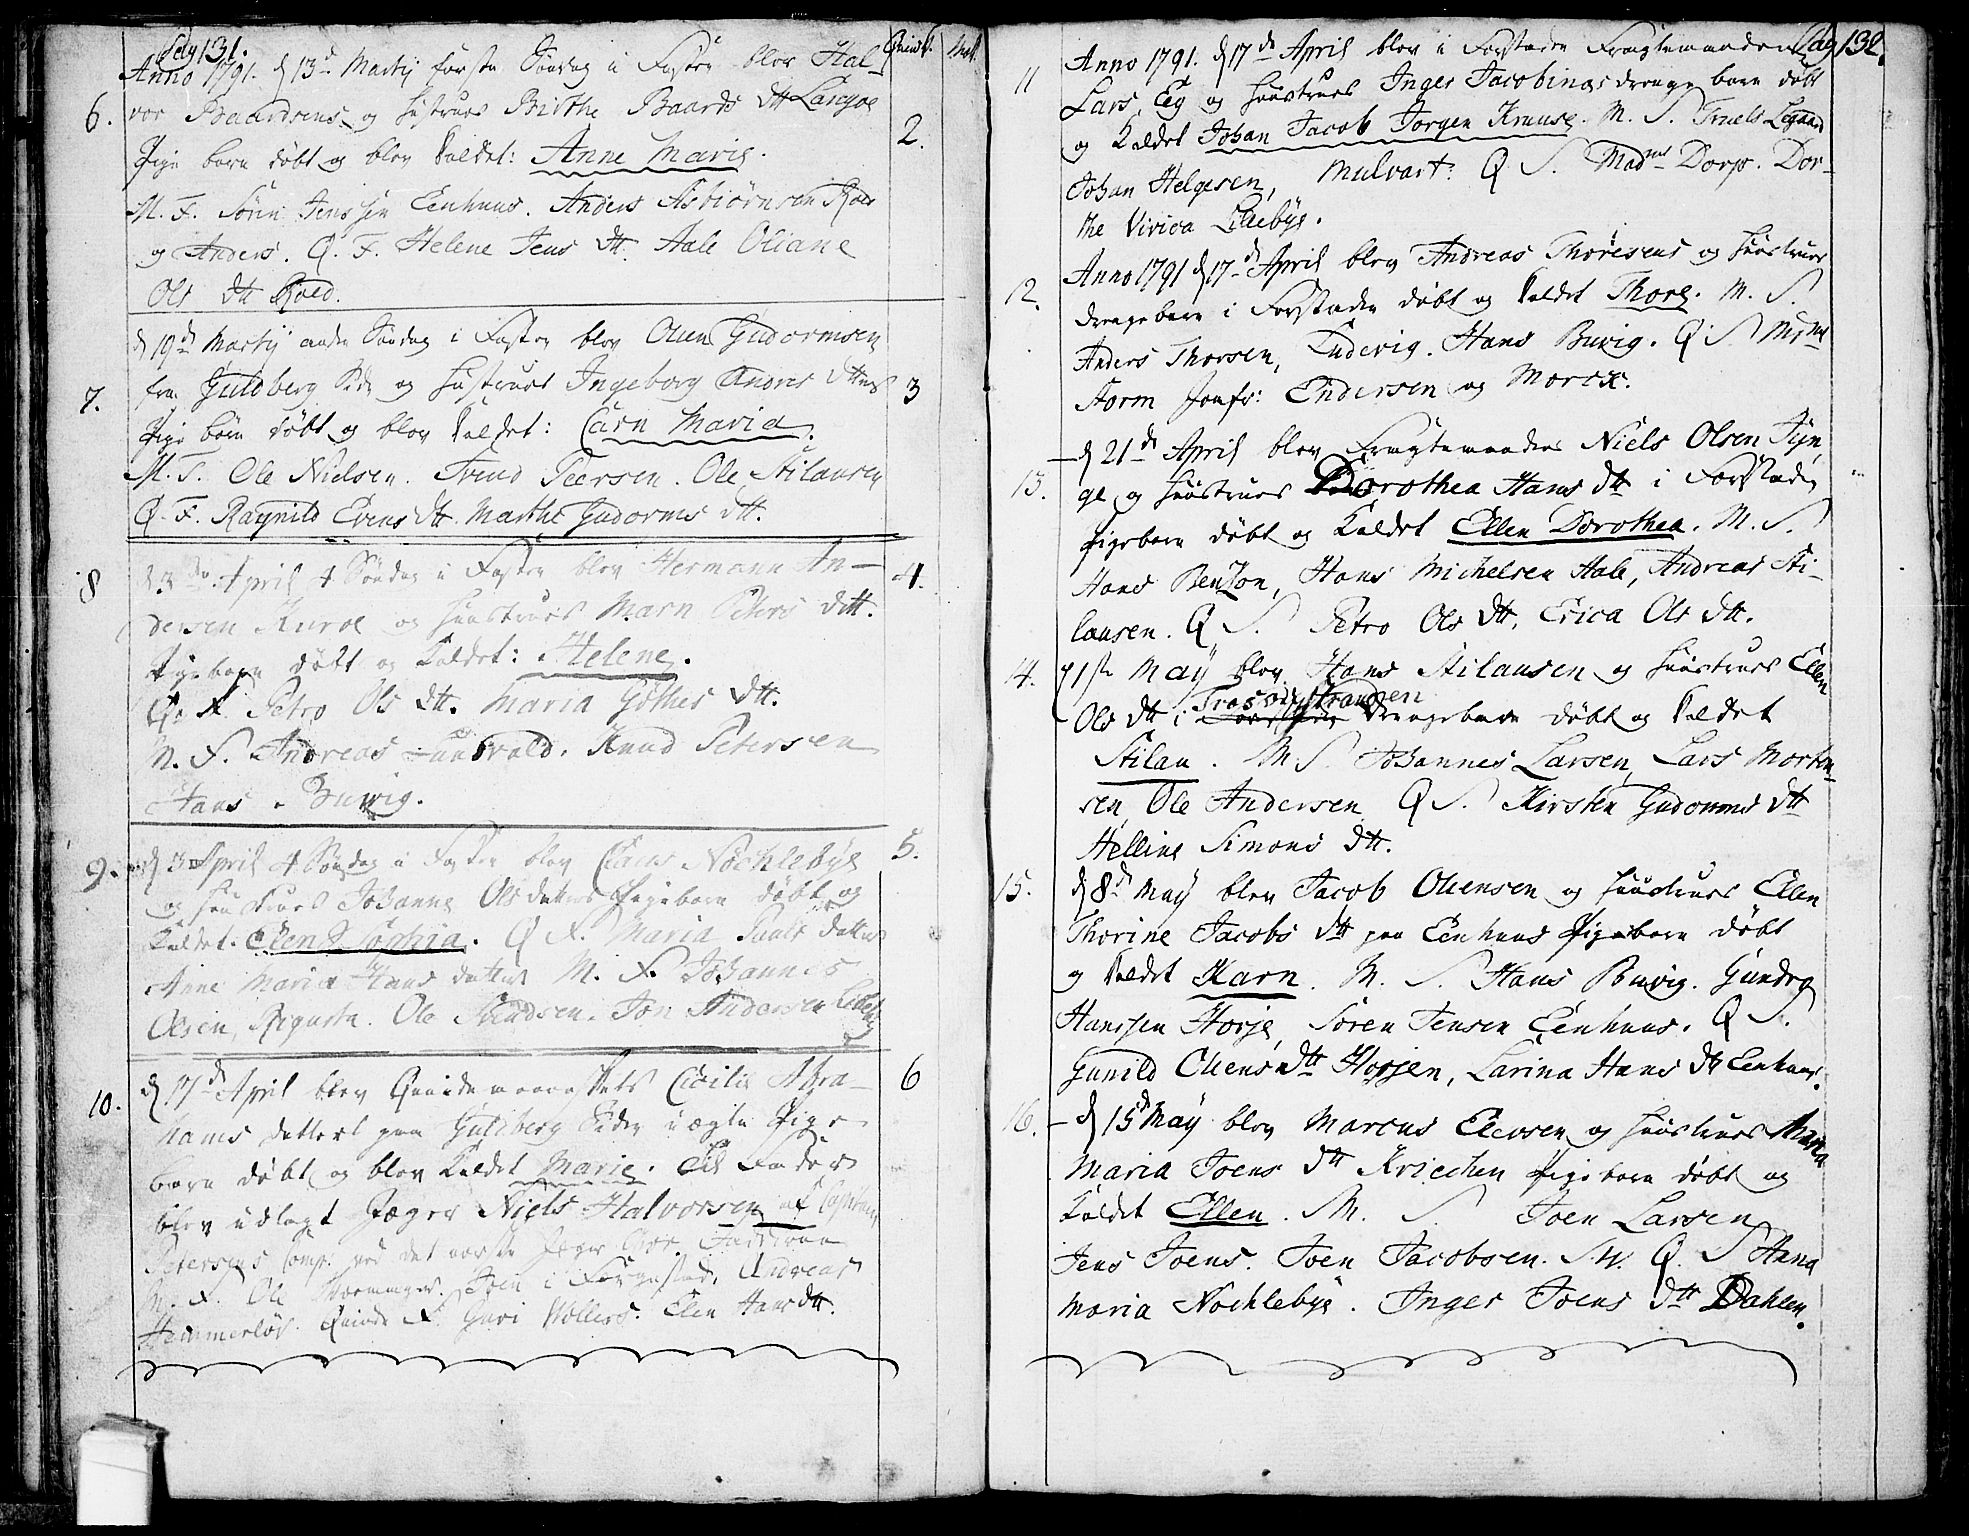 Pag 131.
Qvind. Mdk.
Anno 1791. d 13d Martij første Søndag i Fasten blev Hal-
6. vor Baardsens og hustrues Birthe Baards dtt Langøe 2.
Pige barn døbt og blev kaldet: Anne Marie.
M. F. Sören Jenssen Eenhuus. Anders Asbiörnsen Röed
og Anders. Q. F. Helene Jens dtt. Aale Oliane
Ols dtt Röed.
d 19de Martij anden Søndag i Fasten blev Oluen Gudormsen
7. fra Guldberg Side og hustrues Ingeborg Andres dtters 3
Pige børn døbt og blev kaldet: Carn Maria.
M. F. Ole Nielsen. Svend Peersen. Ole Stilausen
Q. F. Raynild Evens dtt. Marthe Gudorms dtt.
8 d 3de April 4 Søndag i Fasten blev Hermann An- 4.
dersen Kuroe og huustrues Marn Peters dtt.
Pigebarn døbt og kaldet: Helene.
Qv. F. Petro Ols dtt. Maria Göthes dtt.
M. F. Andreas Knud Petersen
Hans Buvig.
9. d 3 April 4 Søndag i Fasten blev Claus Nöchlebÿe 5.
og huustrues Johanne Ols datters Pigebarn døbt og
kaldet. Elen Sophia. Q F. Maria Pauls datter
Anne Maria Hans datter M. F. Johannes
Olsen, Ole Knudsen. Jon Andersen Lilleb
d 17d April blev Qvindemennesket Cicilia Abra- 6
10. hams datters paa Guldberg Siden uægte Pige
barn døbt og blev kaldet Marie. Til Fader
blev udlagt Jæger Niels Halvorsen af Captain
Petersens Comp: ved det norske Jæger Corps. Fadderne
M. F. Ole Joen i Andreas
Hemmerlöv. Qvinde F. Guri Möllers. Elen Hans dtt.
Pag 132.
Anno 1791. d 17de April blev i Forstaden Fragtemanden
11 Lars Eeg og Huustrues Inger Jacobinas drenge barn døbt
og kaldet Johan Jacob Jørgen Kruuse. M. S. Truels Legaard
Johan Helgesen, Mulvart: Q S. Madme Dorp. Dor-
the Vivica Lillebÿe.
Anno 1791 d 17de April blev Andreas Thoresens og huustrues
12. drengebarn i Forstaden døbt og kaldet Thore. M. S.
Anders Thorsen, Ludevig. Hans Buvig. Q S Mdme
Storm Jomfr: Endersen og Morck.
d 21de April blev Fragtemandens Niels Olsen Tyn
13. ge og huustrues Dorothea Hans dtt i Forstaden
Pigebarn døbt og kaldet Ellen Dorothea. M. S.
Hans Bentzon, Hans Michelsen Aale, Andreas Sti-
lausen. Q S. Petro Ols dtt, Erica Ols dtt.
14. d 1ste Maÿ blev Hans Stilausen og huustrues Ellen
Ols dtt i Trosvigstranden drengebarn døbt og kaldet
Stilau. M. S. Johannes Larsen, Lars Morten-
sen, Ole Andersen. Q S. Kirsten Gudorms dtt
Helline Simons dtt.
15. d 8de Maÿ blev Jacob Oluensen og huustrues Ellen
Thorine Jacobs dtt paa Eenhuus Pigebarn døbt
og kaldet Karn. M. S. Hans Buvig. Gundro
Hanssen Horje, Sören Jensen Eenhuus. Q S.
Gunild Oluens dtt Horjen, Larina Hans dtt Eenhuus.
16. d 15d Maÿ blev Marcus Elevsen og huustrues Maria
Maria Joens dtt Kriechen Pige barn døbt og
kaldet Ellen. M. S. Joen Larsen
Jens Joens. Joen Jacobsen. Q. S Hanna
Maria Nochlebÿe. Inger Joens dtt Dahlen.